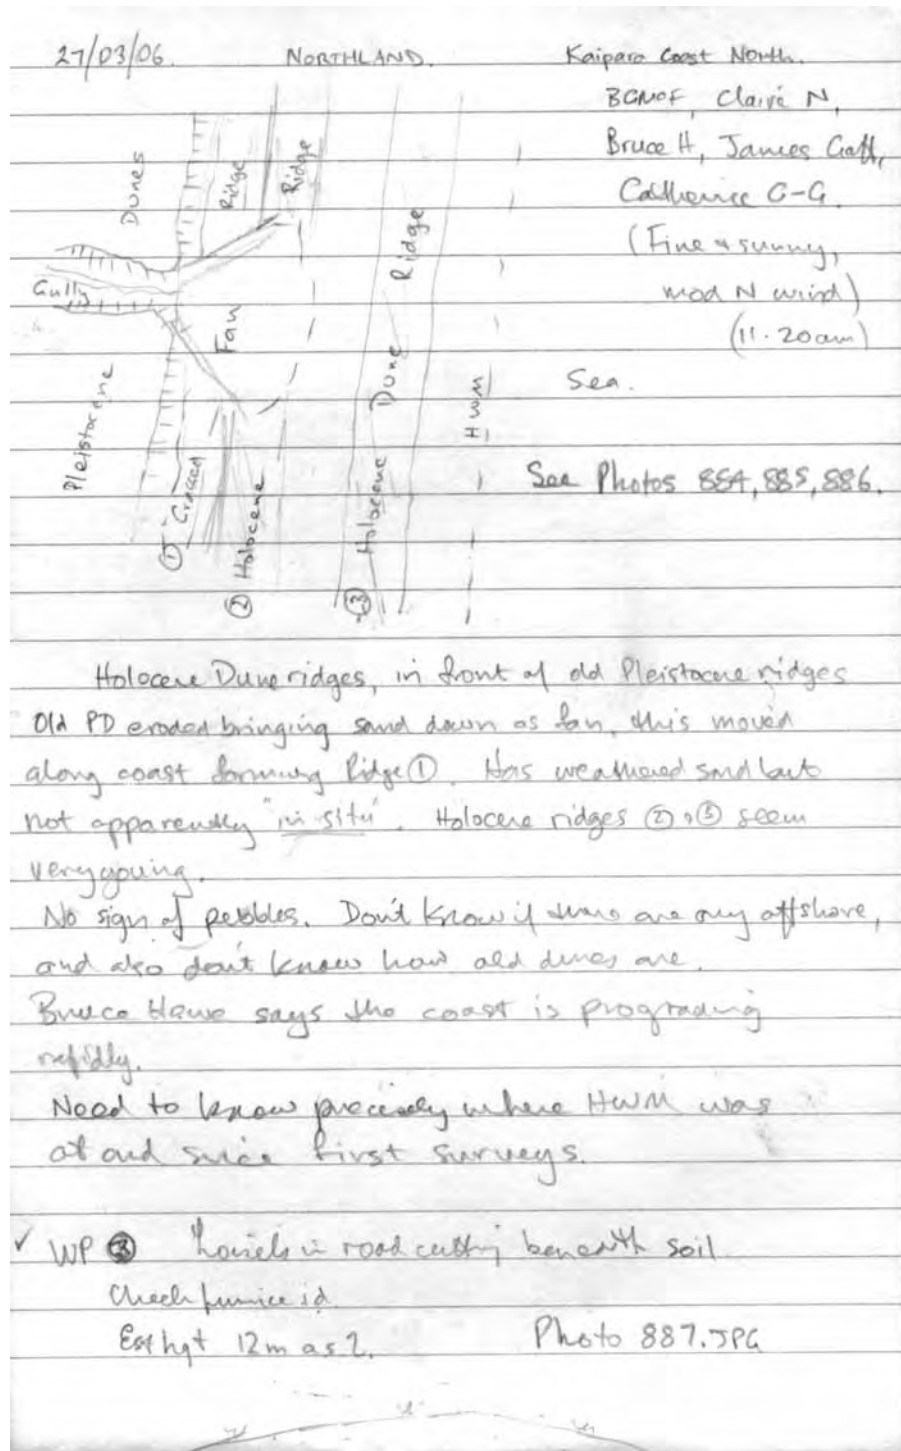 27/03/06. NORTHLAND. Kaipara Coast North.
BGMcF, Claire N,
Bruce H, James Goff,
Catherine C-G.
(Fine & sunny,
mod N wind)
(11.20am)
Dunes
Ridge
Ridge
Ridge
Gully
Fan
Dune
Sea.
Pleistocene
HWM
See Photos 884, 885, 886.
① Grassed
② Holocene
③ Holocene
Holocene Dune ridges, in front of old Pleistocene ridges
Old PD eroded bringing sand down as fan, this moved
along coast forming Ridge ①. Has weathered sand but
not apparently "in situ". Holocene ridges ② & ③ seem
very young.
No sign of pebbles. Don't know if there are any offshore,
and also don't know how old dunes are.
Bruce says the coast is prograding
rapidly.
Need to know precisely where HWM was
at and since first surveys.
✓ WP ③ in road cutting beneath soil
Check pumice id.
Est hgt 12m as 2. Photo 887.JPG